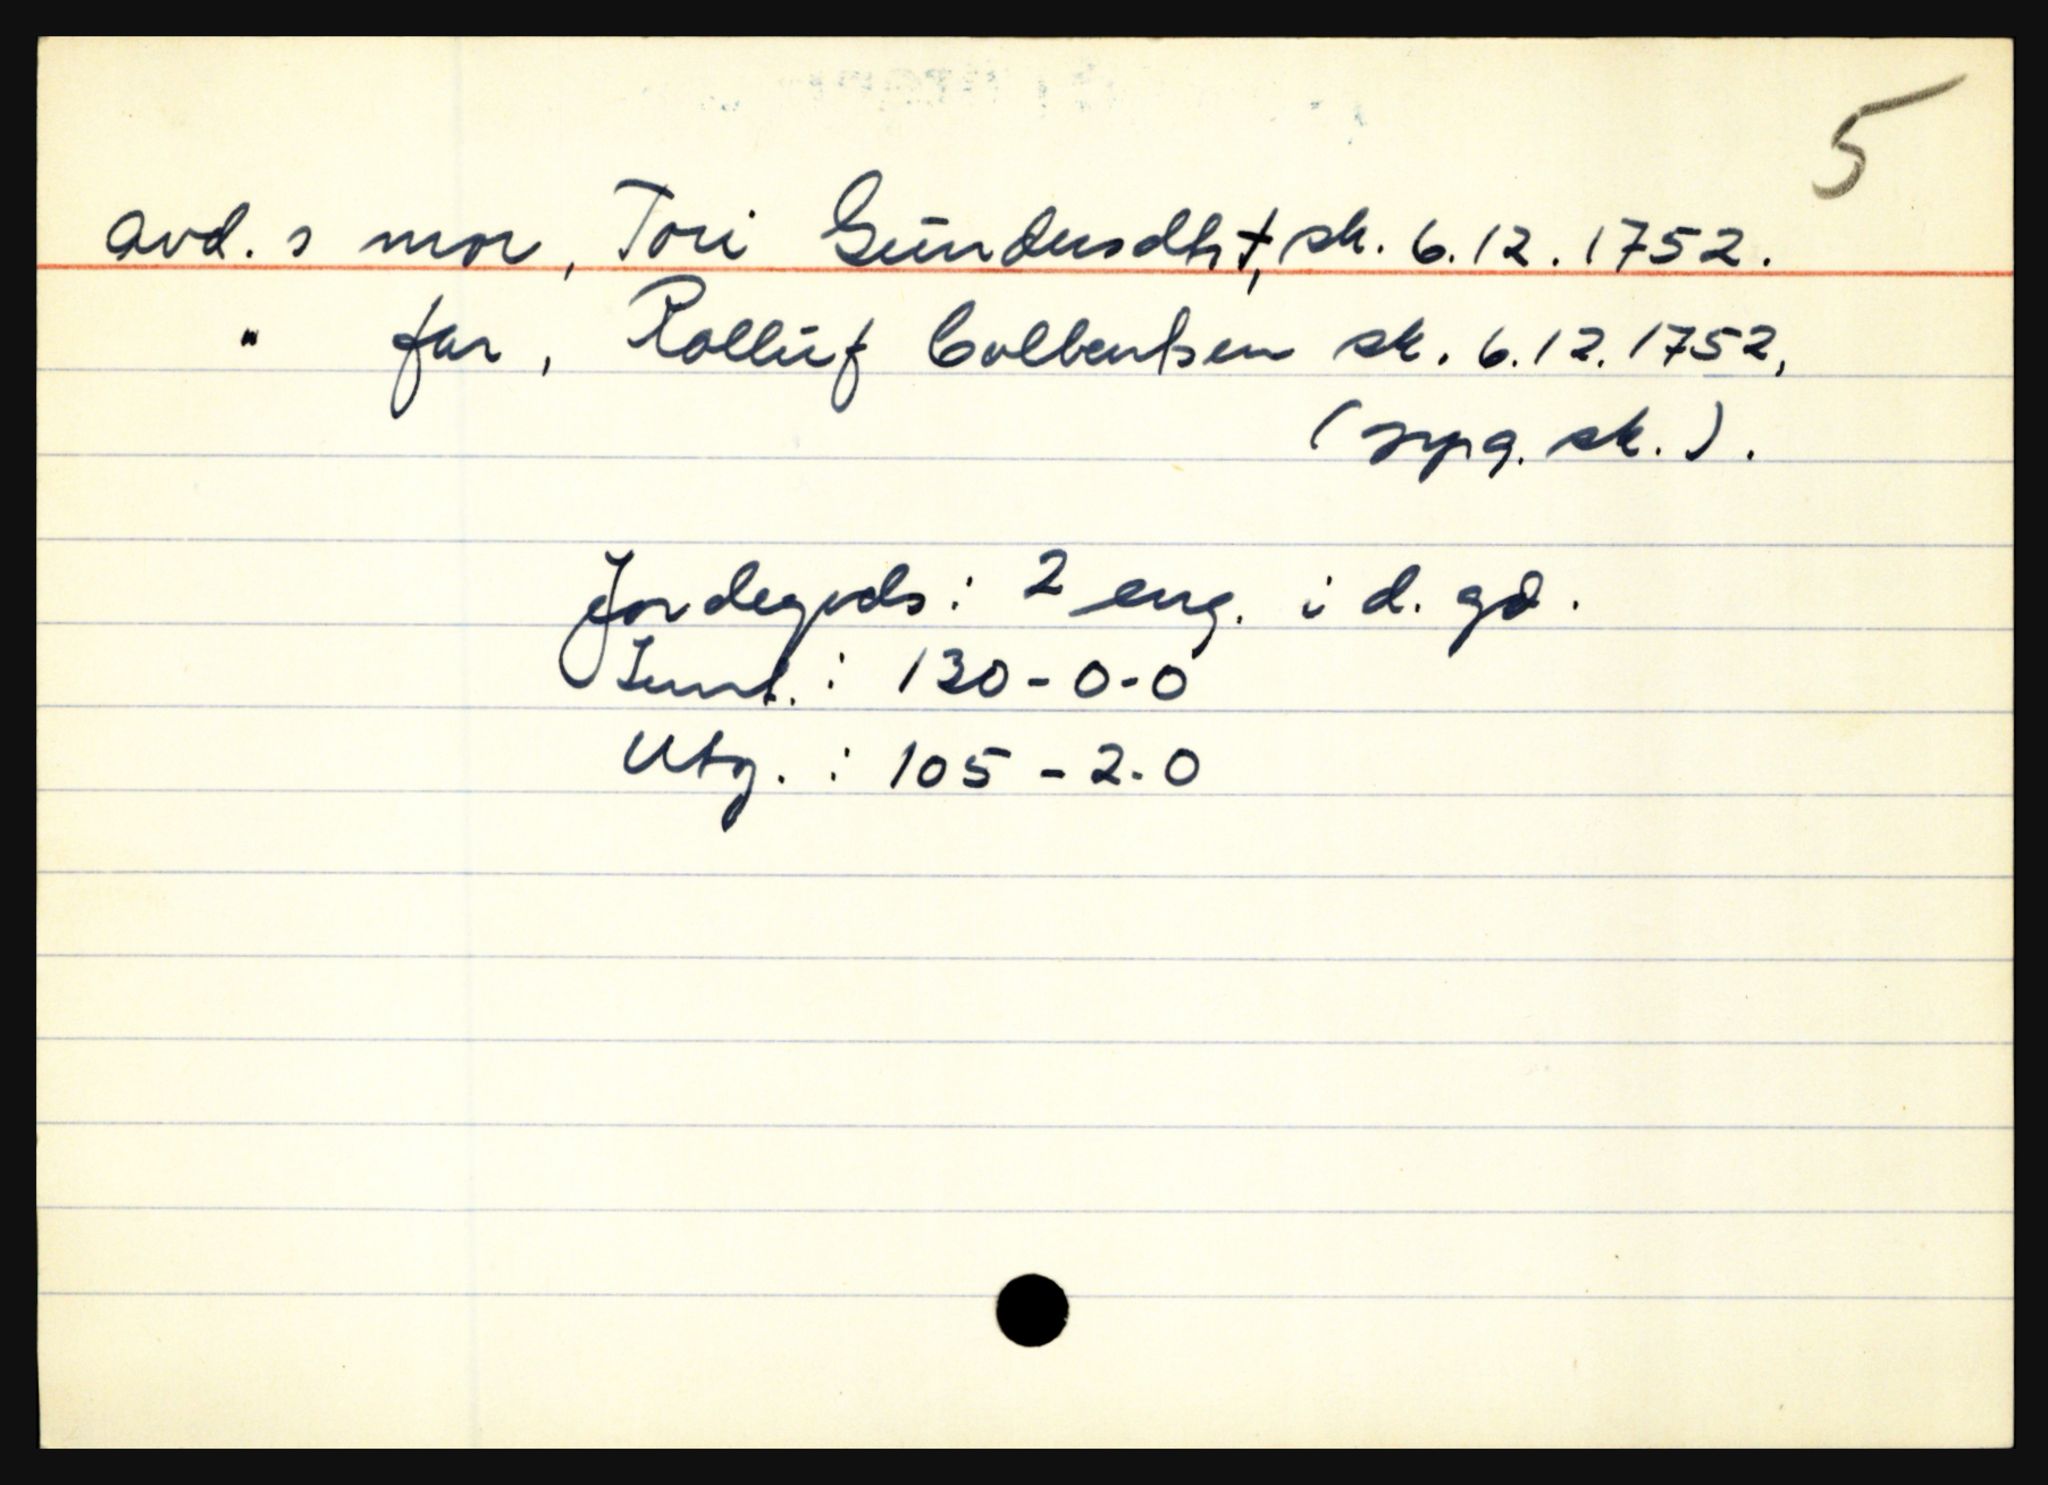 5
avd. s mor, Tori Gündersdtr †, sk. 6.12.1752.
" far, Rolluf Colbentsen sk. 6.12.1752,
sk.).
Jordegods: 2 eng. i d. gd.
Innt.: 130-0-0
Utg.: 105-2-0